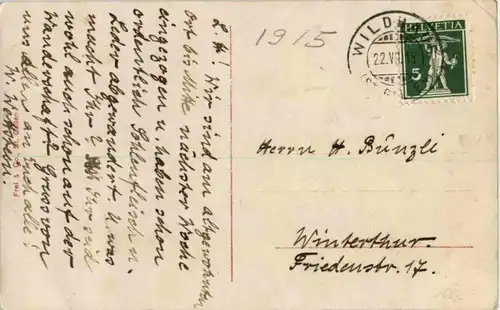 L. H! Wir sind am altgewohnten
Ort bis Mitte nächster Woche
eingezogen u. haben schon
ordentlich Sohlenfleisch u.
Leder abgewandert. U. was
macht Ihr? Ihr seid
wohl auch schon auf der
Wanderschaft? Gruss von
uns allen an Euch alle!
W. Wettstein.
1915
WILDH
22.VII.15
HELVETIA
5
Herrn H. Bünzli
Winterthur.
Friedenstr. 17.